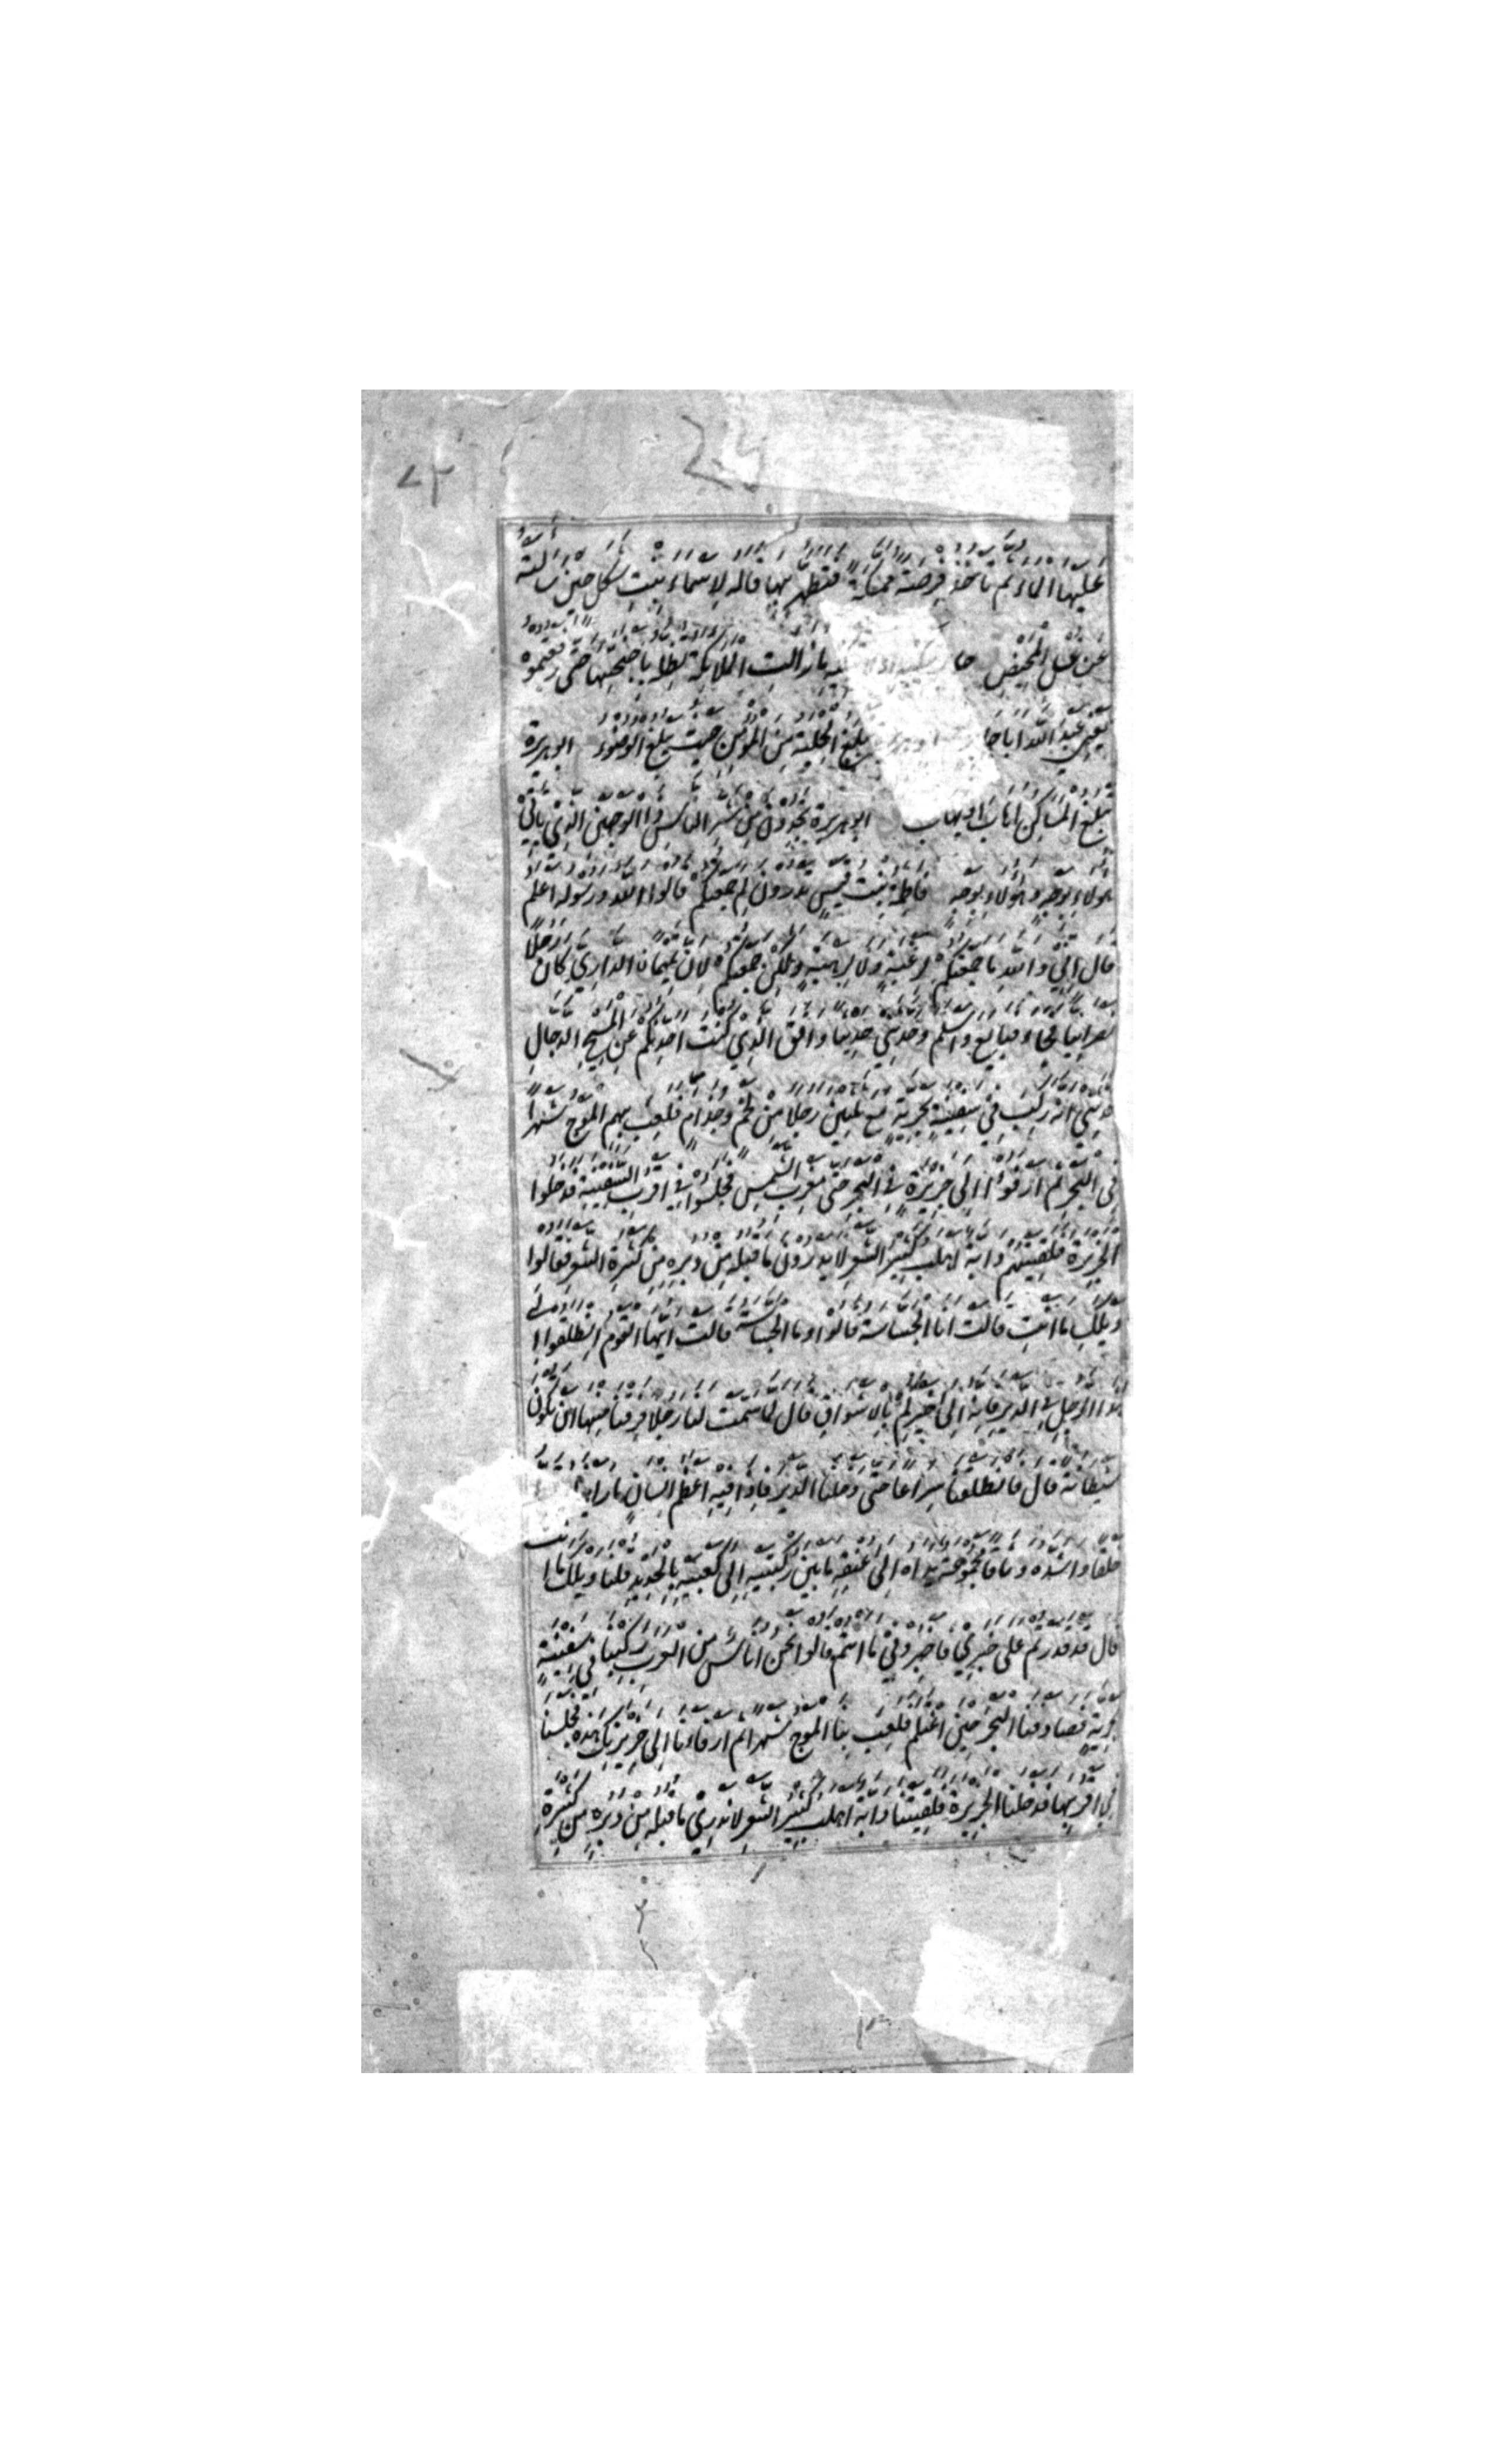 ٧٣
عليها الماء ثم تاخذ فرصة ممسكة فتطهر بها قاله لاسماء بنت شكل حين سالته
عن غسل المحيض جا تبكيه او لا تبكيه ما زالت الملائكة تظله باجنحتها حتى رفعتموه
يعني عبد الله ابا جا تبلغ الحلية من المؤمن حيث يبلغ الوضوء ابو هريرة
تبلغ المساكن اهاب او يهاب ابو هريرة تجدون من شر الناس ذا الوجهين الذي ياتي
هولاء بوجه وهولاء بوجه فاطمة بنت قيس تدرون لم جمعتكم قالوا الله ورسوله اعلم
قال اني والله ما جمعتكم لرغبة ولا لرهبة ولكن جمعتكم لان تميما الداري كان رجلا
نصرانيا فجاء فبايع واسلم وحدثني حديثا وافق الذي كنت احدثكم عن المسيح الدجال
حدثني انه ركب في سفينة بحرية مع ثلثين رجلا من لخم وجذام فلعب بهم الموج شهرا
في البحر ثم ارفؤا الى جزيرة في البحر حتى مغرب الشمس فجلسوا في اقرب السفينة فدخلوا
الجزيرة فلقيتهم دابة اهلب كثير الشعر لا يدرون ما قبله من دبره من كثرة الشعر فقالوا
ويلك ما انت قالت انا الجساسة قالوا وما الجساسة قالت ايها القوم انطلقوا الى
هذا الرجل في الدير فانه الى خبركم بالاشواق قال لما سمت لنا رجلا فرقنا منها ان تكون
شيطانة قال فانطلقنا سراعا حتى دخلنا الدير فاذا فيه اعظم انسان ما راينا
خلقا واشده وثاقا مجموعة يداه الى عنقه ما بين ركبتيه الى كعبيه بالحديد قلنا ويلك ما انت
قال قد قدرتم على خبري فاخبروني ما انتم قالوا نحن اناس من العرب ركبنا في سفينة
بحرية فصادفنا البحر حين اغتلم فلعب بنا الموج شهرا ثم ارفاءنا الى جزيرتك هذه فجلسنا
في اقربها فدخلنا الجزيرة فلقيتنا دابة اهلب كثير الشعر لا ندري ما قبله من دبره من كثرة